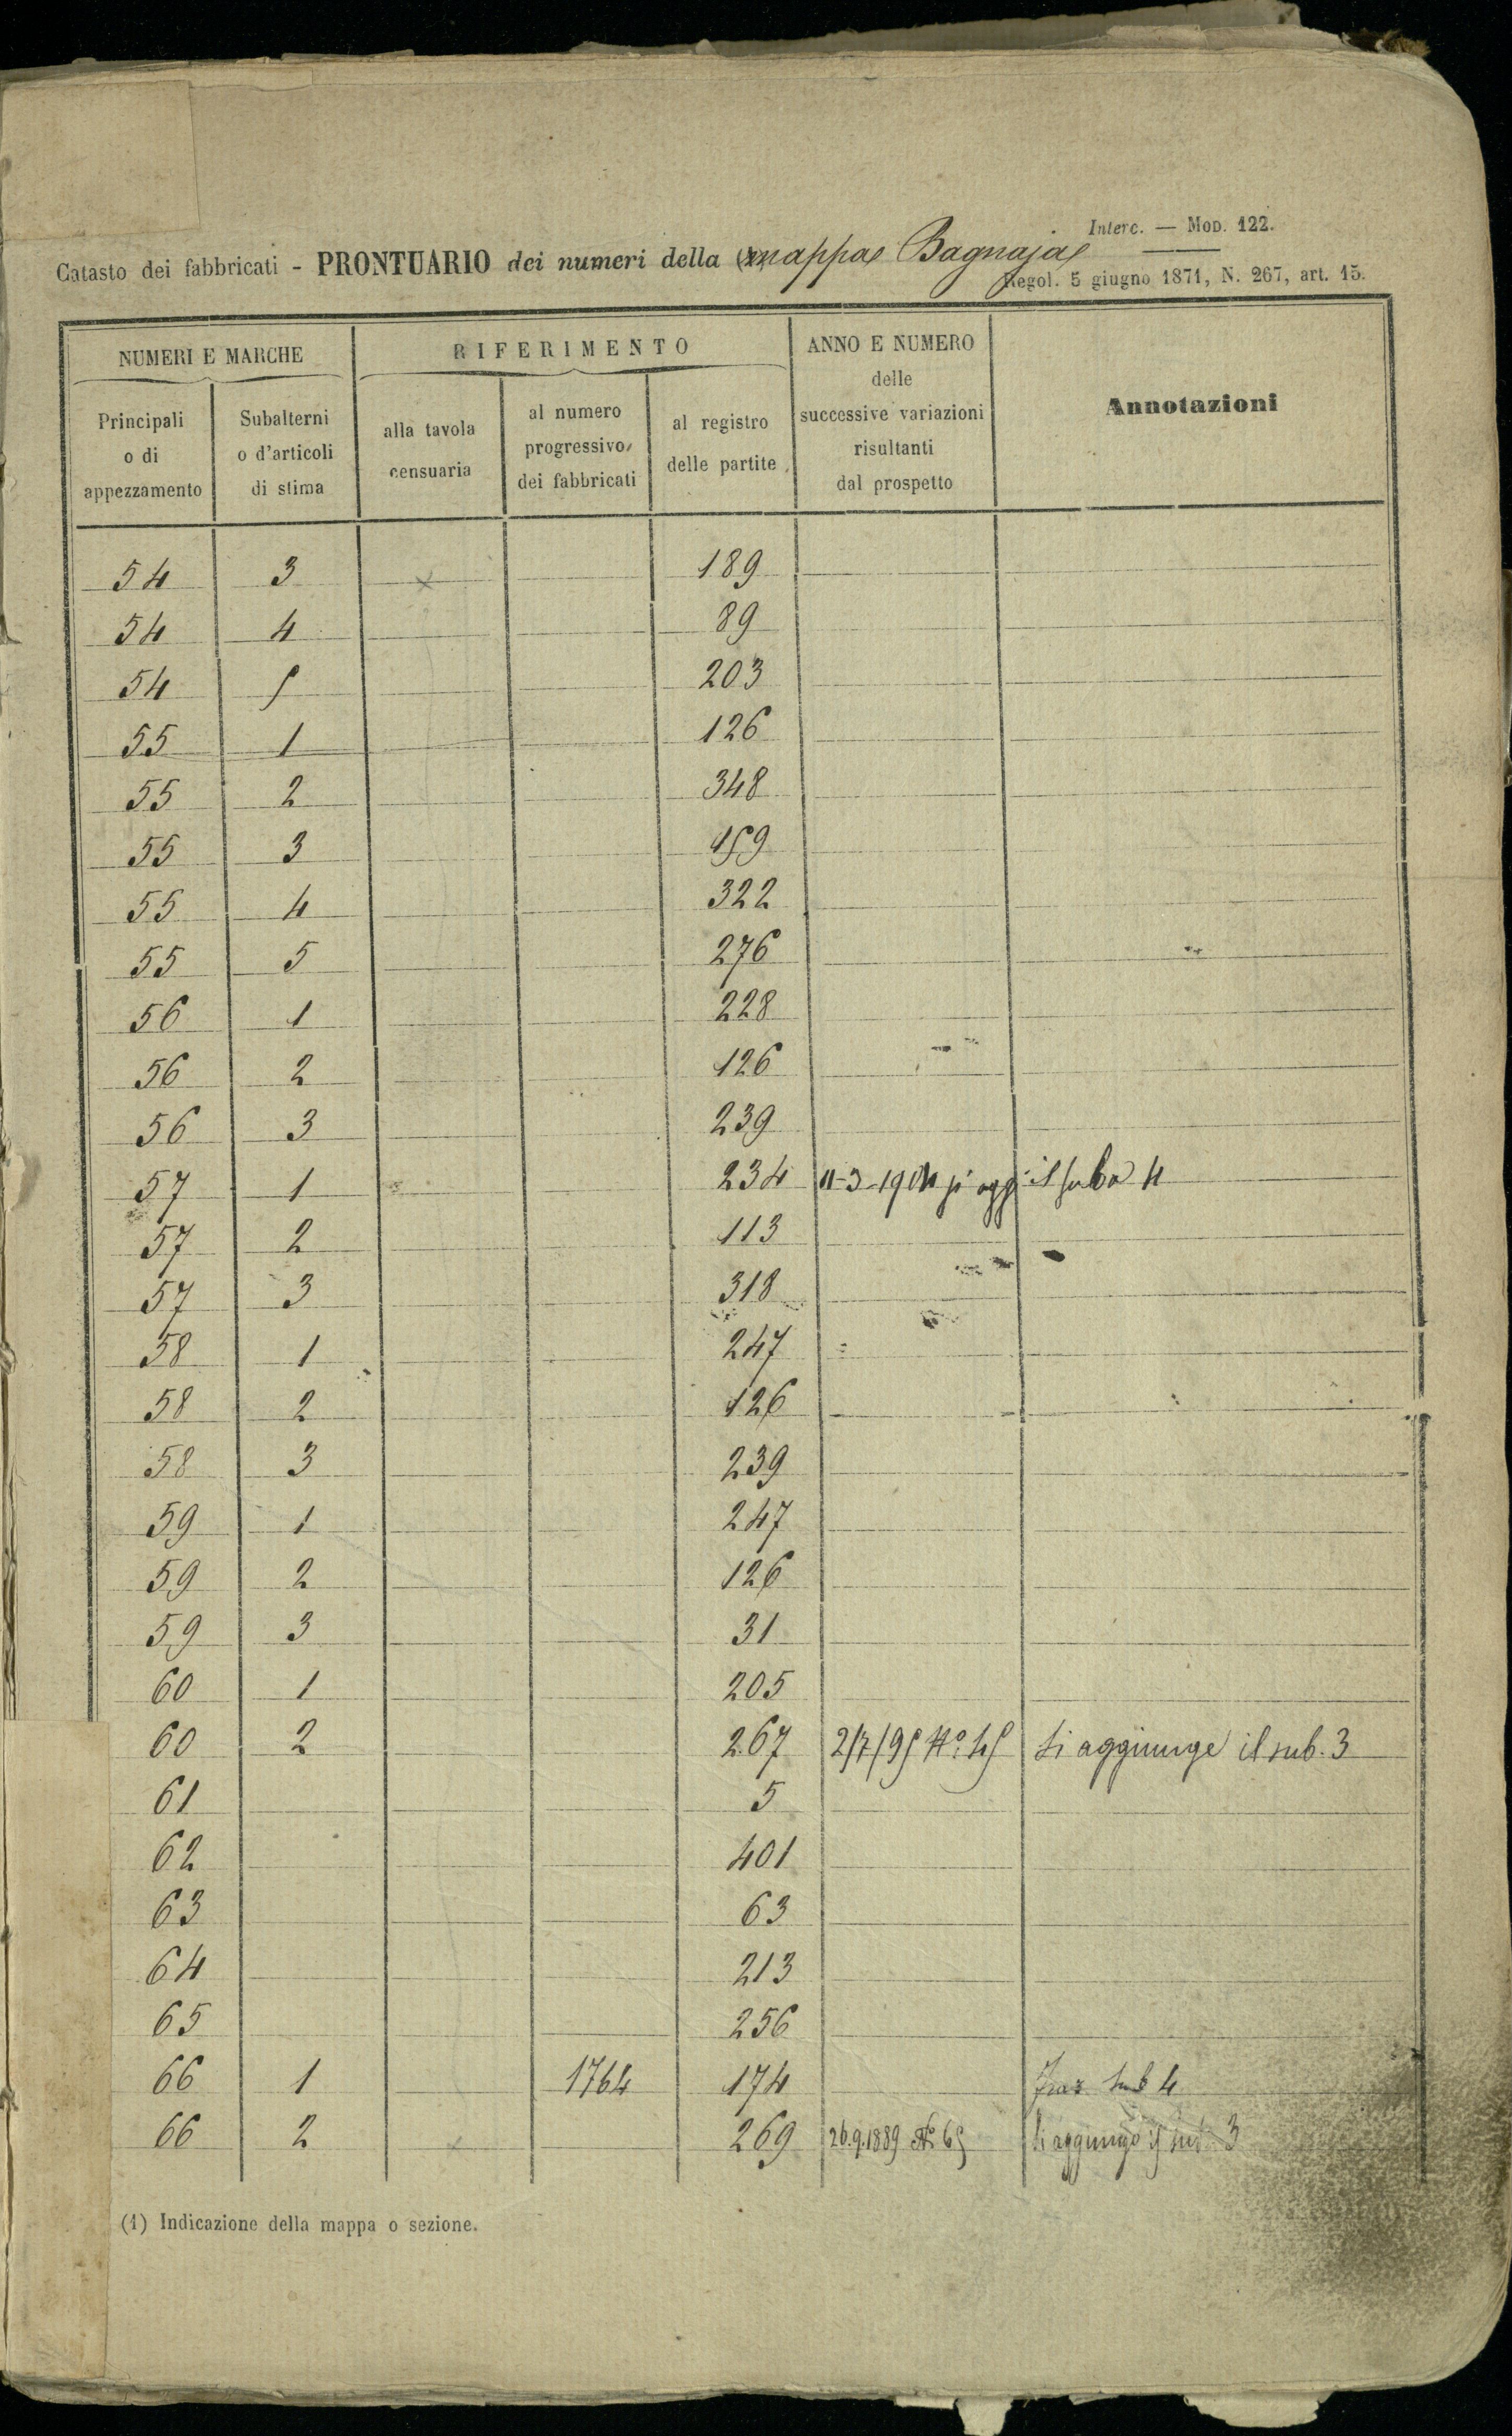 Interc. — Mod. 122.
Catasto dei fabbricati - PRONTUARIO dei numeri della (1) mappa Bagnaja
Regol. 5 giugno 1871, N. 267, art. 15.
NUMERI E MARCHE RIFERIMENTO ANNO E NUMERO delle successive variazioni risultanti dal prospetto Annotazioni
Principali o di appezzamento Subalterni o d'articoli di stima alla tavola censuaria al numero progressivo dei fabbricati al registro delle partite
54 3 189
54 4 89
54 5 203
55 1 126
55 2 348
55 3 159
55 4 322
55 5 276
56 1 228
56 2 126
56 3 239
57 1 234 11-3-1904 si agg il sub 4
57 2 113
57 3 318
58 1 247
58 2 126
58 3 239
59 1 247
59 2 126
59 3 31
60 1 205
60 2 267 2/7/95 N.o 45 Si aggiunge il sub. 3
61 5
62 401
63 63
64 213
65 256
66 1 1764 174 sub 4
66 2 269 26.9.1889 N. 65 Si aggiunge il sub 3
(1) Indicazione della mappa o sezione.